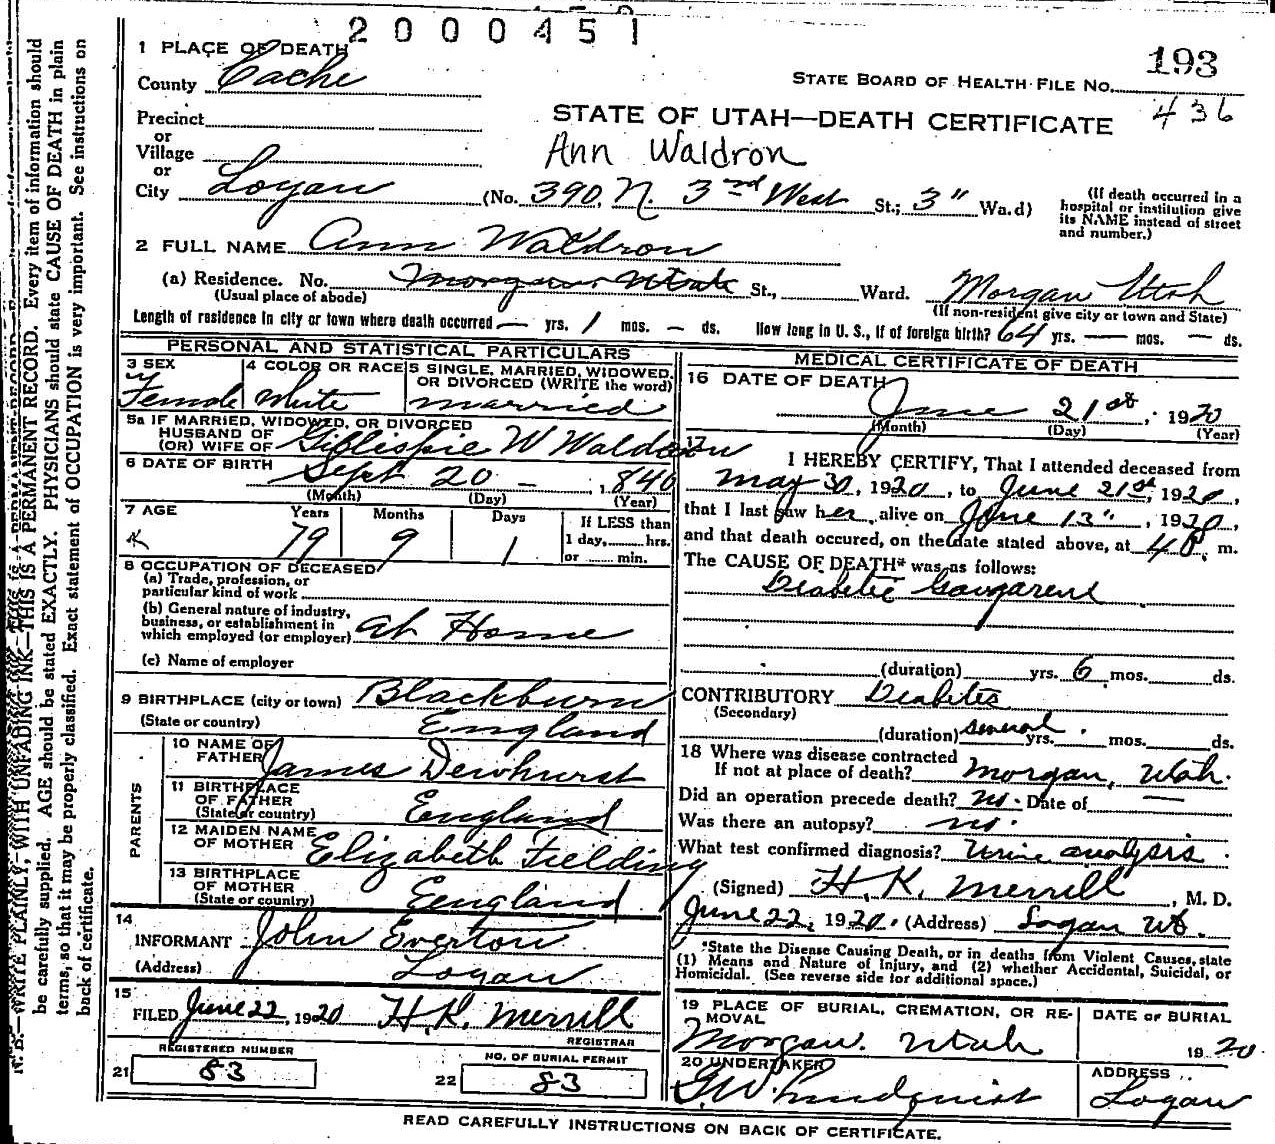 2000451
1 PLACE OF DEATH
County Cache
193
STATE BOARD OF HEALTH-FILE No.
436
Precinct
or
Village
or
City Logan
STATE OF UTAH—DEATH CERTIFICATE
Ann Waldron
(No. 390, N. 3rd West St.; 3" Wa.d)
(If death occurred in a
hospital or institution give
its NAME instead of street
and number.)
2 FULL NAME Ann Waldron
(a) Residence. No. Morgan Utah St., Ward. Morgan Utah
(Usual place of abode)
(If non-resident give city or town and State)
Length of residence in city or town where death occurred — yrs. 1 mos. — ds. How long in U. S., if of foreign birth? 64 yrs. — mos. — ds.
PERSONAL AND STATISTICAL PARTICULARS
3 SEX
Female
4 COLOR OR RACE
White
5 SINGLE, MARRIED, WIDOWED,
OR DIVORCED (WRITE the word)
married
5a IF MARRIED, WIDOWED, OR DIVORCED
HUSBAND OF
(OR) WIFE OF Gillispie W Waldron
6 DATE OF BIRTH
Sept 20 - 1840
(Month) (Day) (Year)
7 AGE Years Months Days
79 9 1
If LESS than
1 day, hrs.
or min.
8 OCCUPATION OF DECEASED
(a) Trade, profession, or
particular kind of work
(b) General nature of industry,
business, or establishment in
which employed (or employer) at Home
(c) Name of employer
9 BIRTHPLACE (city or town) Blackburn
(State or country) England
PARENTS
10 NAME OF
FATHER James Dewhurst
11 BIRTHPLACE
OF FATHER
(State or country) England
12 MAIDEN NAME
OF MOTHER Elizabeth Fielding
13 BIRTHPLACE
OF MOTHER
(State or country) England
14
INFORMANT John Everton
(Address) Logan
15
FILED June 22, 1920 H. K. Merrill
REGISTRAR
REGISTERED NUMBER
21 83
NO. OF BURIAL PERMIT
22 83
MEDICAL CERTIFICATE OF DEATH
16 DATE OF DEATH
June 21st, 1920
(Month) (Day) (Year)
17
I HEREBY CERTIFY, That I attended deceased from
May 30, 1920, to June 21st, 1920,
that I last saw her alive on June 13", 1920,
and that death occured, on the date stated above, at 4 P. m.
The CAUSE OF DEATH* was as follows:
Diabetic Gangarene
(duration) yrs. 6 mos. ds.
CONTRIBUTORY Diabetes
(Secondary)
(duration) several yrs. mos. ds.
18 Where was disease contracted
If not at place of death? Morgan, Utah.
Did an operation precede death? no. Date of —
Was there an autopsy? no.
What test confirmed diagnosis? Urine analysis.
(Signed) H. K. Merrill, M. D.
June 22, 1920. (Address) Logan Ut.
*State the Disease Causing Death, or in deaths from Violent Causes, state
(1) Means and Nature of Injury, and (2) whether Accidental, Suicidal, or
Homicidal. (See reverse side for additional space.)
19 PLACE OF BURIAL, CREMATION, OR RE-
MOVAL
Morgan. Utah
DATE OF BURIAL
1920
20 UNDERTAKER
G. W. Lundquist
ADDRESS
Logan
READ CAREFULLY INSTRUCTIONS ON BACK OF CERTIFICATE.
N. B.—WRITE PLAINLY, WITH UNFADING INK—THIS IS A PERMANENT RECORD. Every item of information should
be carefully supplied. AGE should be stated EXACTLY. PHYSICIANS should state CAUSE OF DEATH in plain
terms, so that it may be properly classified. Exact statement of OCCUPATION is very important. See instructions on
back of certificate.